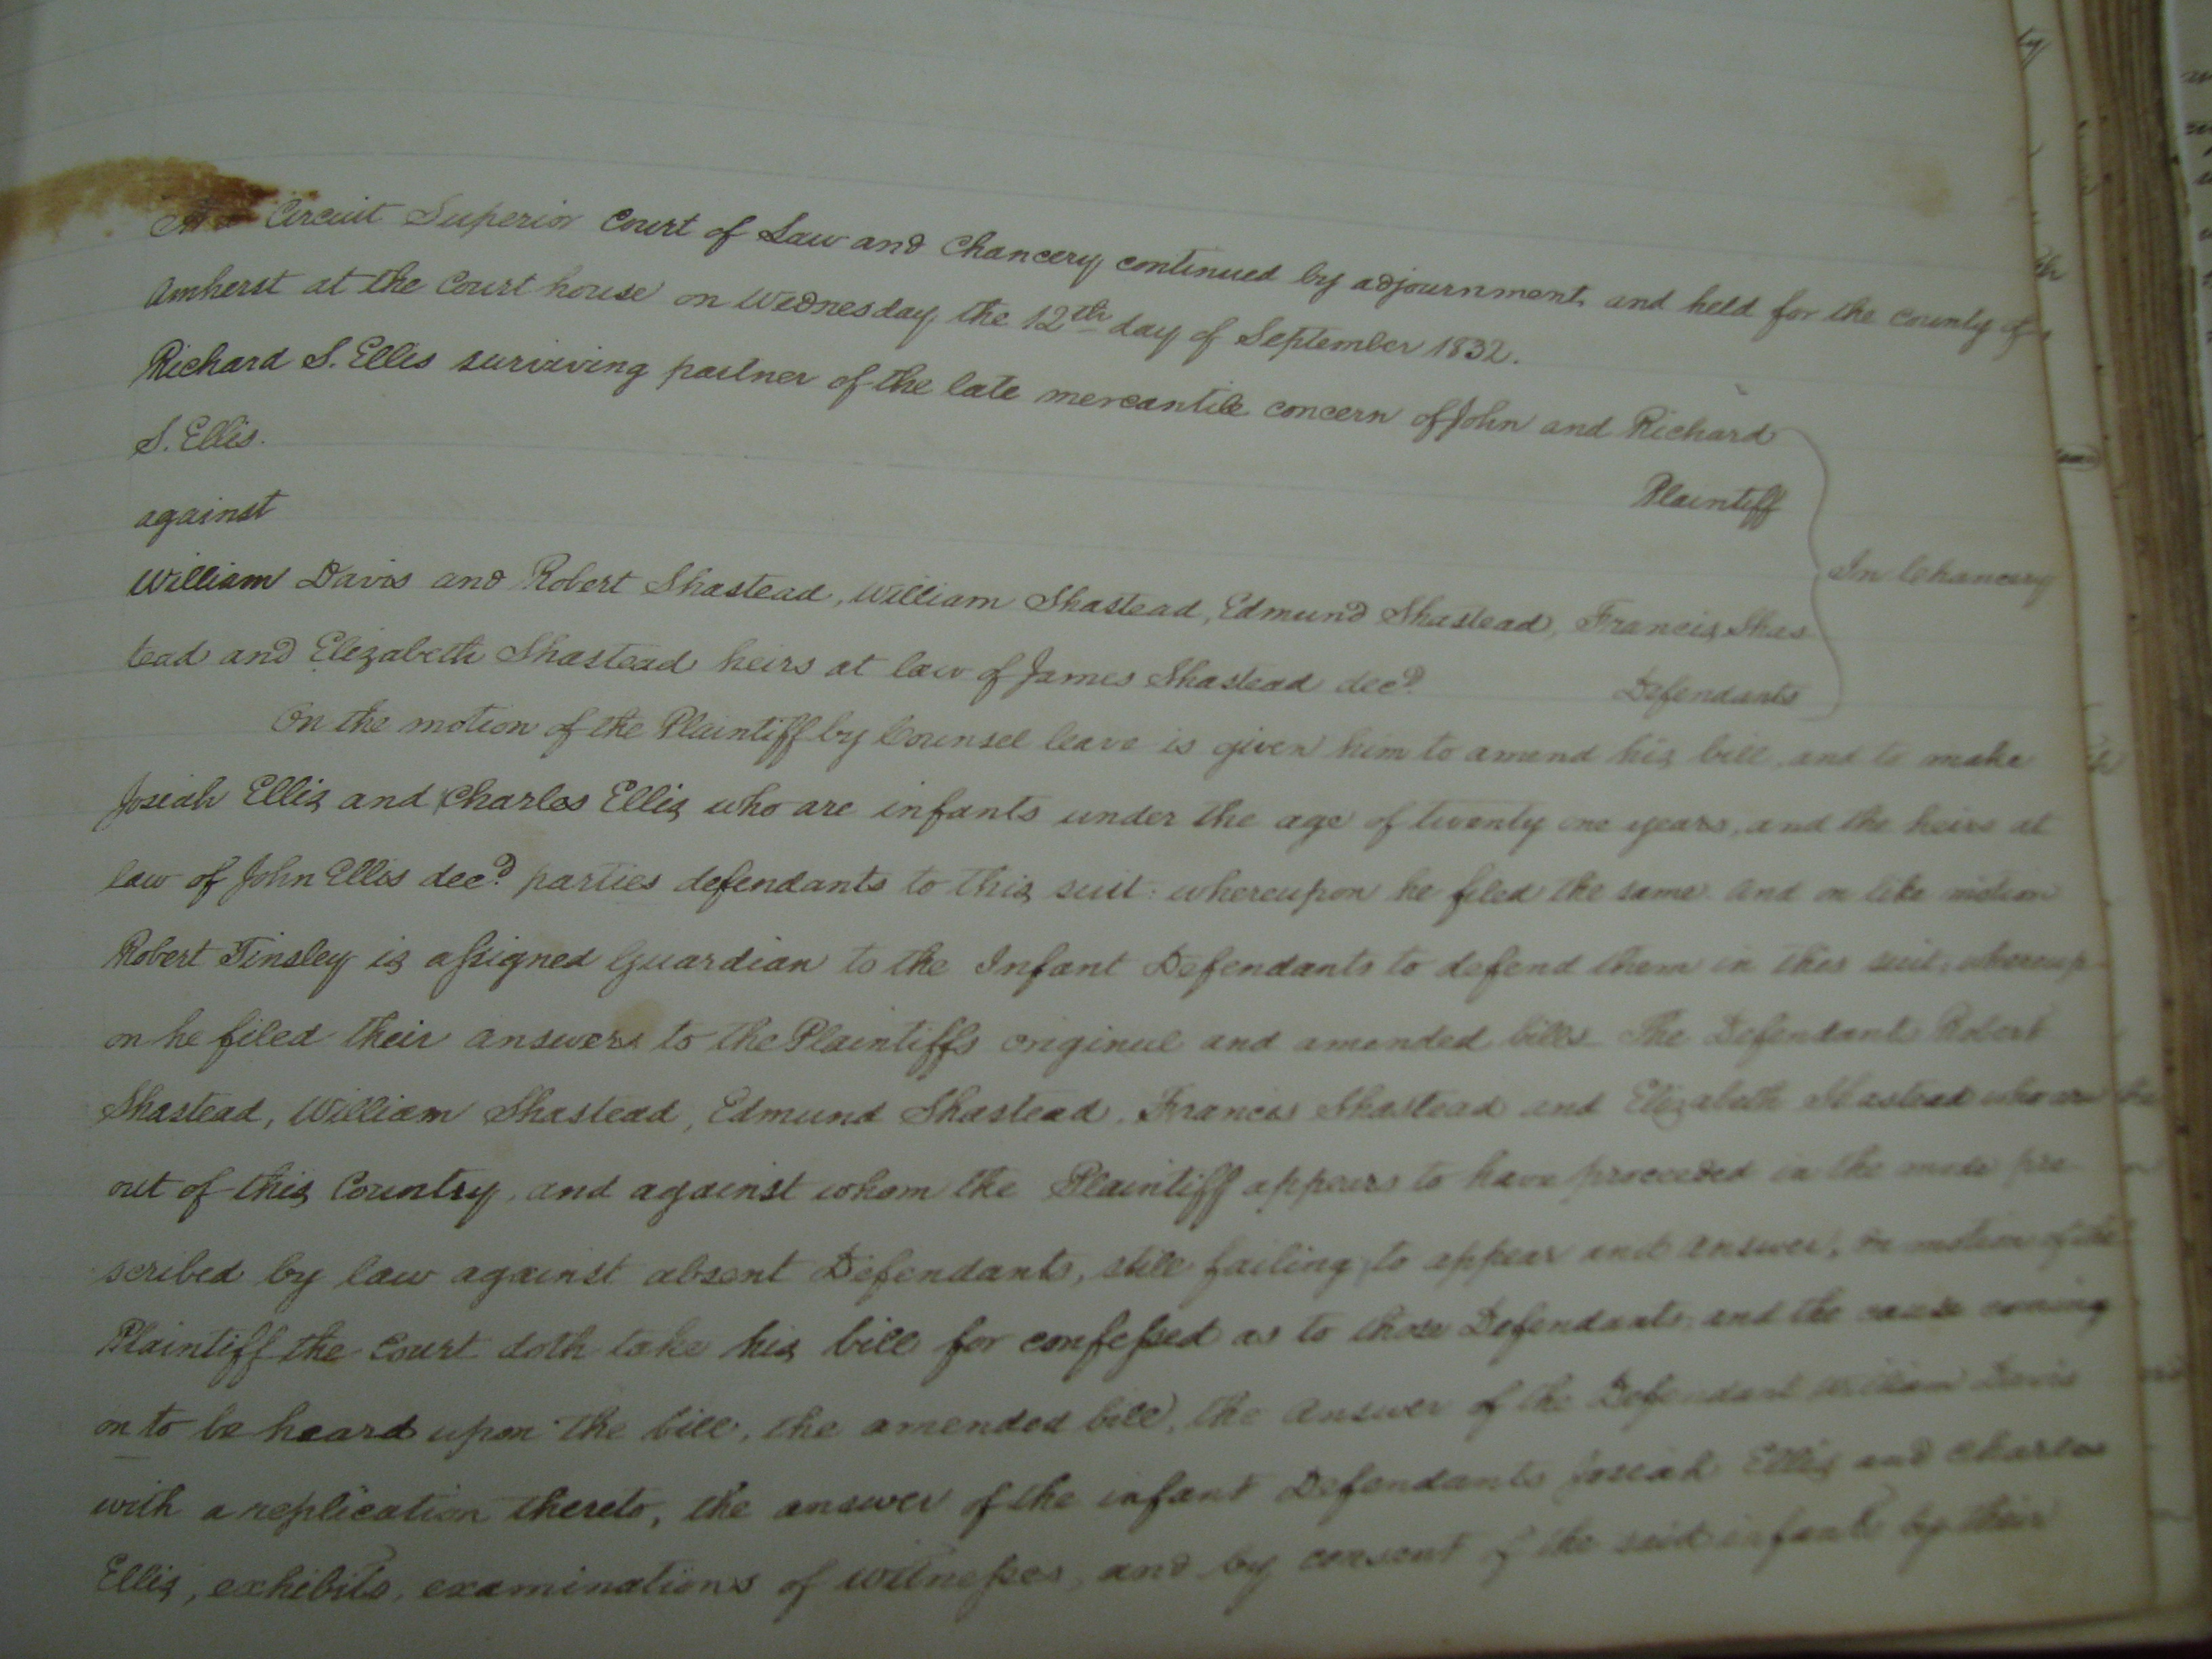 At a Circuit Superior Court of Law and Chancery continued by adjournment, and held for the county of
Amherst at the Court house on Wednesday the 12th day of September 1832.
Richard S. Ellis surviving partner of the late mercantile concern of John and Richard
S. Ellis.
Plaintiff
against
In Chancery
William Davis and Robert Shastead, William Shastead, Edmund Shastead, Francis Shas
tead and Elizabeth Shastead heirs at law of James Shastead decd.
Defendants
On the motion of the Plaintiff by Counsel leave is given him to amend his bill, and to make
Josiah Ellis and Charles Ellis who are infants under the age of twenty one years, and the heirs at
law of John Ellis decd. parties defendants to this suit: whereupon he filed the same. and on like motion
Robert Tinsley is assigned Guardian to the Infant Defendants to defend them in this suit, whereup
on he filed their answers to the Plaintiffs original and amended bills. The Defendants Robert
Shastead, William Shastead, Edmund Shastead, Francis Shastead and Elizabeth Shastead who are
out of this Country, and against whom the Plaintiff appears to have proceeded in the mode pre
scribed by law against absent Defendants, still failing to appear and answer, on motion of the
Plaintiff the Court doth take his bill for confessed as to those Defendants. and the cause coming
on to be heard upon the bill, the amended bill, the answer of the Defendant William Davis
with a replication thereto, the answer of the infant Defendants Josiah Ellis and Charles
Ellis, exhibits, examinations of witnesses, and by consent of the said infants by their